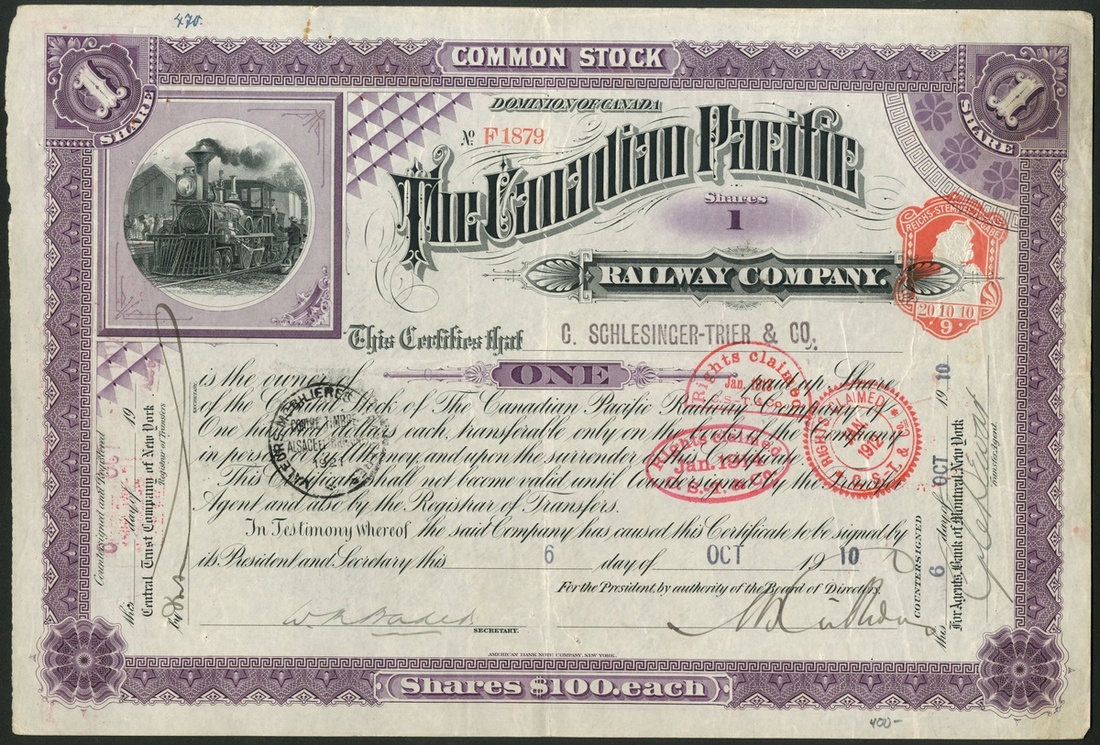 470.
COMMON STOCK
1
SHARE
1
SHARE
DOMINION OF CANADA
No. F1879
The Canadian Pacific
Shares
1
RAILWAY COMPANY.
REICHS-STEMPELABGABE
20 10 10
9
This Certifies that C. SCHLESINGER-TRIER & CO.
is the owner of ONE paid up Share
of the Common Stock of The Canadian Pacific Railway Company of
One hundred dollars each, transferable only on the books of the Company
in person or by attorney and upon the surrender of this Certificate.
This Certificate shall not become valid until Countersigned by the Transfer
Agent and also by the Registrar of Transfers.
In Testimony Whereof the said Company has caused this Certificate to be signed by
its President and Secretary this 6 day of OCT 1910
For the President, by authority of the Board of Directors.
SECRETARY.
AMERICAN BANK NOTE COMPANY, NEW YORK.
Shares $100. each
400-
Countersigned and Registered
this day of 19
Central Trust Company of New York
Registrar of Transfers.
by
COUNTERSIGNED
this 6 day of OCT 1910
For Agents, Bank of Montreal, New York
Transfer Agent.
Rights claimed
Jan.
C.S.-T. & Co.
Rights claimed
Jan. 19
RIGHTS CLAIMED
JAN.
1912
C. S.-T. & Co.
VALEURS MOBILIERES
ALSACE
1921